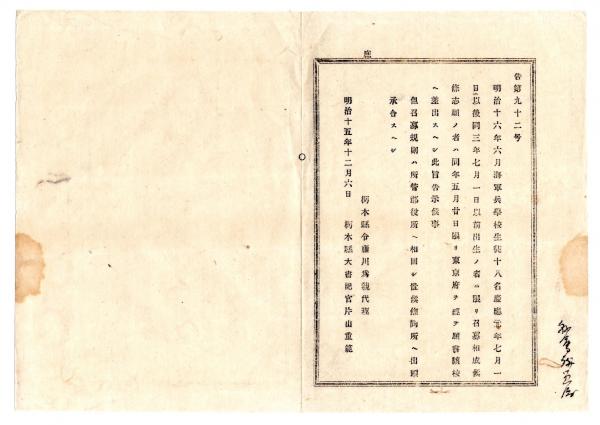 庶
告第九十二号
明治十六年六月海軍兵學校生徒十八名慶應元年七月一
日以後同三年七月一日以前出生ノ者ニ限リ召募相成候
條志願ノ者ハ同年五月廿日限リ東京府ヲ經テ願書該校
ヘ差出スヘシ此旨告示候事
但召募規則ハ所管郡役所ヘ相回シ置候條同所ヘ出頭
承合スヘシ
明治十五年十二月六日
栃木縣令藤川爲親代理
栃木縣大書記官片山重範